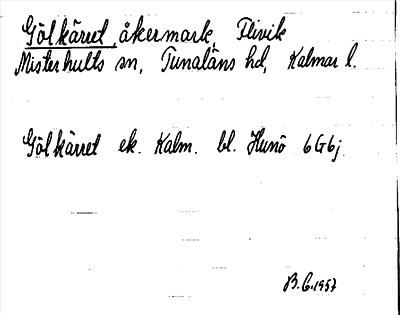 Gölkärret, åkermark, Flivik
Misterhults sn, Tunaläns hd, Kalmar l.
Gölkärret ek. Kalm. bl. Hunö 6G6j.
B.G.1957